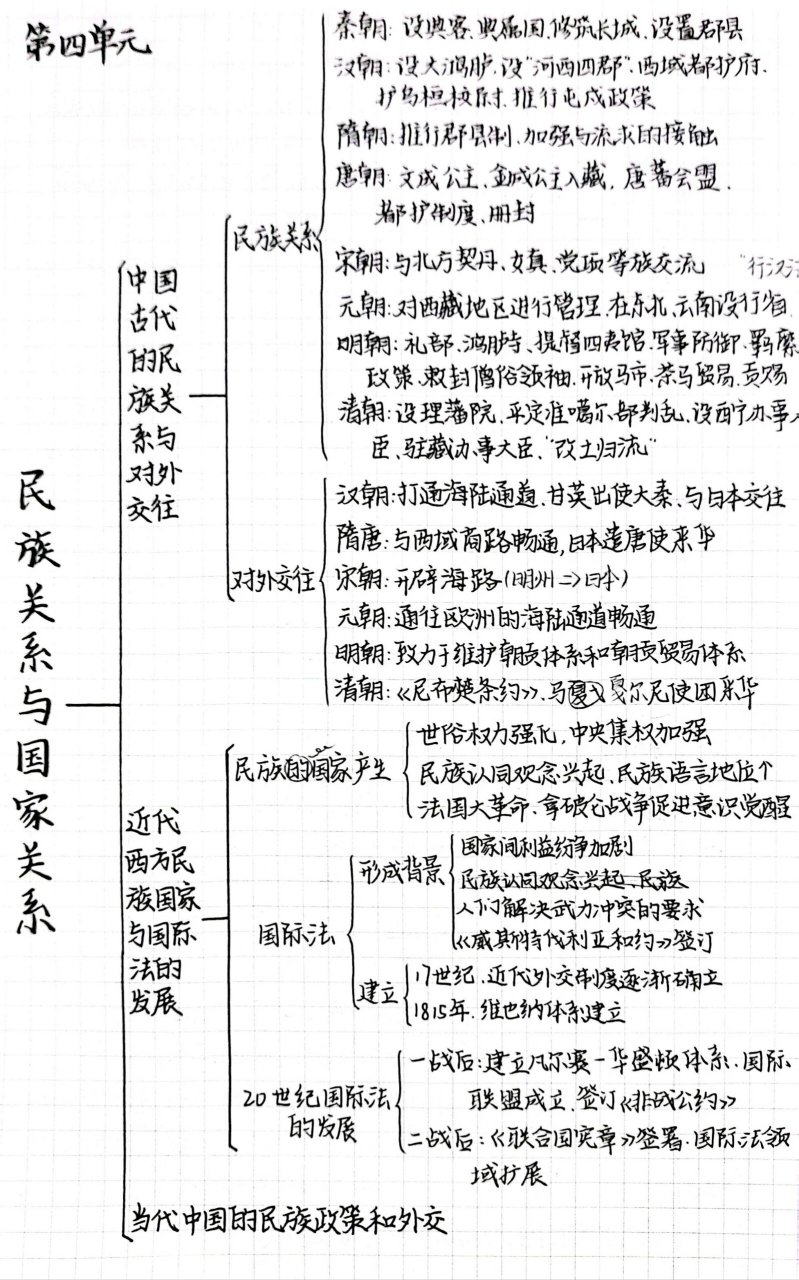 第四单元
民族关系与国家关系
中国
古代
的民
族关
系与
对外
交往
民族关系
秦朝:设典客、典属国,修筑长城、设置郡县
汉朝:设大鸿胪、设"河西四郡"、西域都护府、
护乌桓校尉、推行屯戍政策
隋朝:推行郡县制、加强与流求的接触
唐朝:文成公主、金城公主入藏,唐蕃会盟、
都护制度、册封
宋朝:与北方契丹、女真、党项等族交流 "行汉
元朝:对西藏地区进行管理,在东北、云南设行省
明朝:礼部、鸿胪寺、提督四夷馆、军事防御、羁縻
政策、敕封僧俗领袖、开放马市、茶马贸易、贡赐
清朝:设理藩院,平定准噶尔部判乱,设西宁办事
臣、驻藏办事大臣、"改土归流"
对外交往
汉朝:打通海陆通道、甘英出使大秦、与日本交往
隋唐:与西域商路畅通,日本遣唐使来华
宋朝:开辟海路(明州=>日本)
元朝:通往欧洲的海陆通道畅通
明朝:致力于维护朝贡体系和朝贡贸易体系
清朝:《尼布楚条约》、马戛尔尼使团来华
近代
西方民
族国家
与国际
法的
发展
民族的国家产生
世俗权力强化,中央集权加强
民族认同观念兴起、民族语言地位↑
法国大革命、拿破仑战争促进意识觉醒
国际法
形成背景
国家间利益纷争加剧
民族认同观念兴起、民族
人们解决武力冲突的要求
《威斯特伐利亚和约》签订
建立
17世纪,近代外交制度逐渐确立
1815年,维也纳体系建立
20世纪国际法
的发展
一战后:建立凡尔赛-华盛顿体系、国际
联盟成立、签订《非战公约》
二战后:《联合国宪章》签署、国际法领
域扩展
当代中国的民族政策和外交